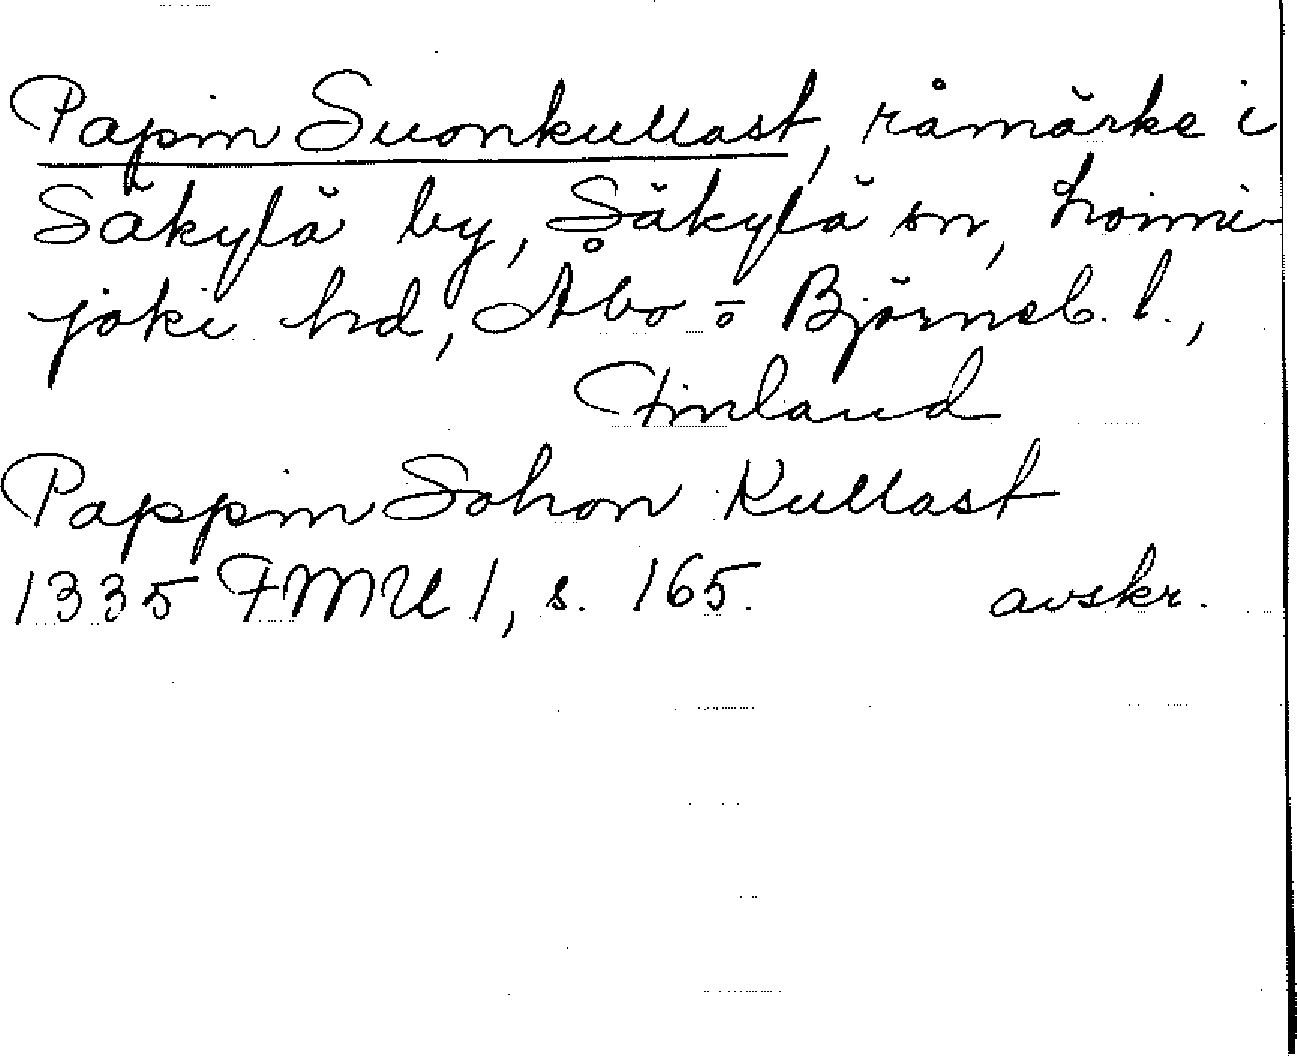 Papin Suonkullast, råmärke i
Säkylä by, Säkylä sn, Loimi-
joki hd, Åbo o Björneb. l.,
Finland
Pappin Sohon Kullast
1335 FMU 1, s. 165. avskr.